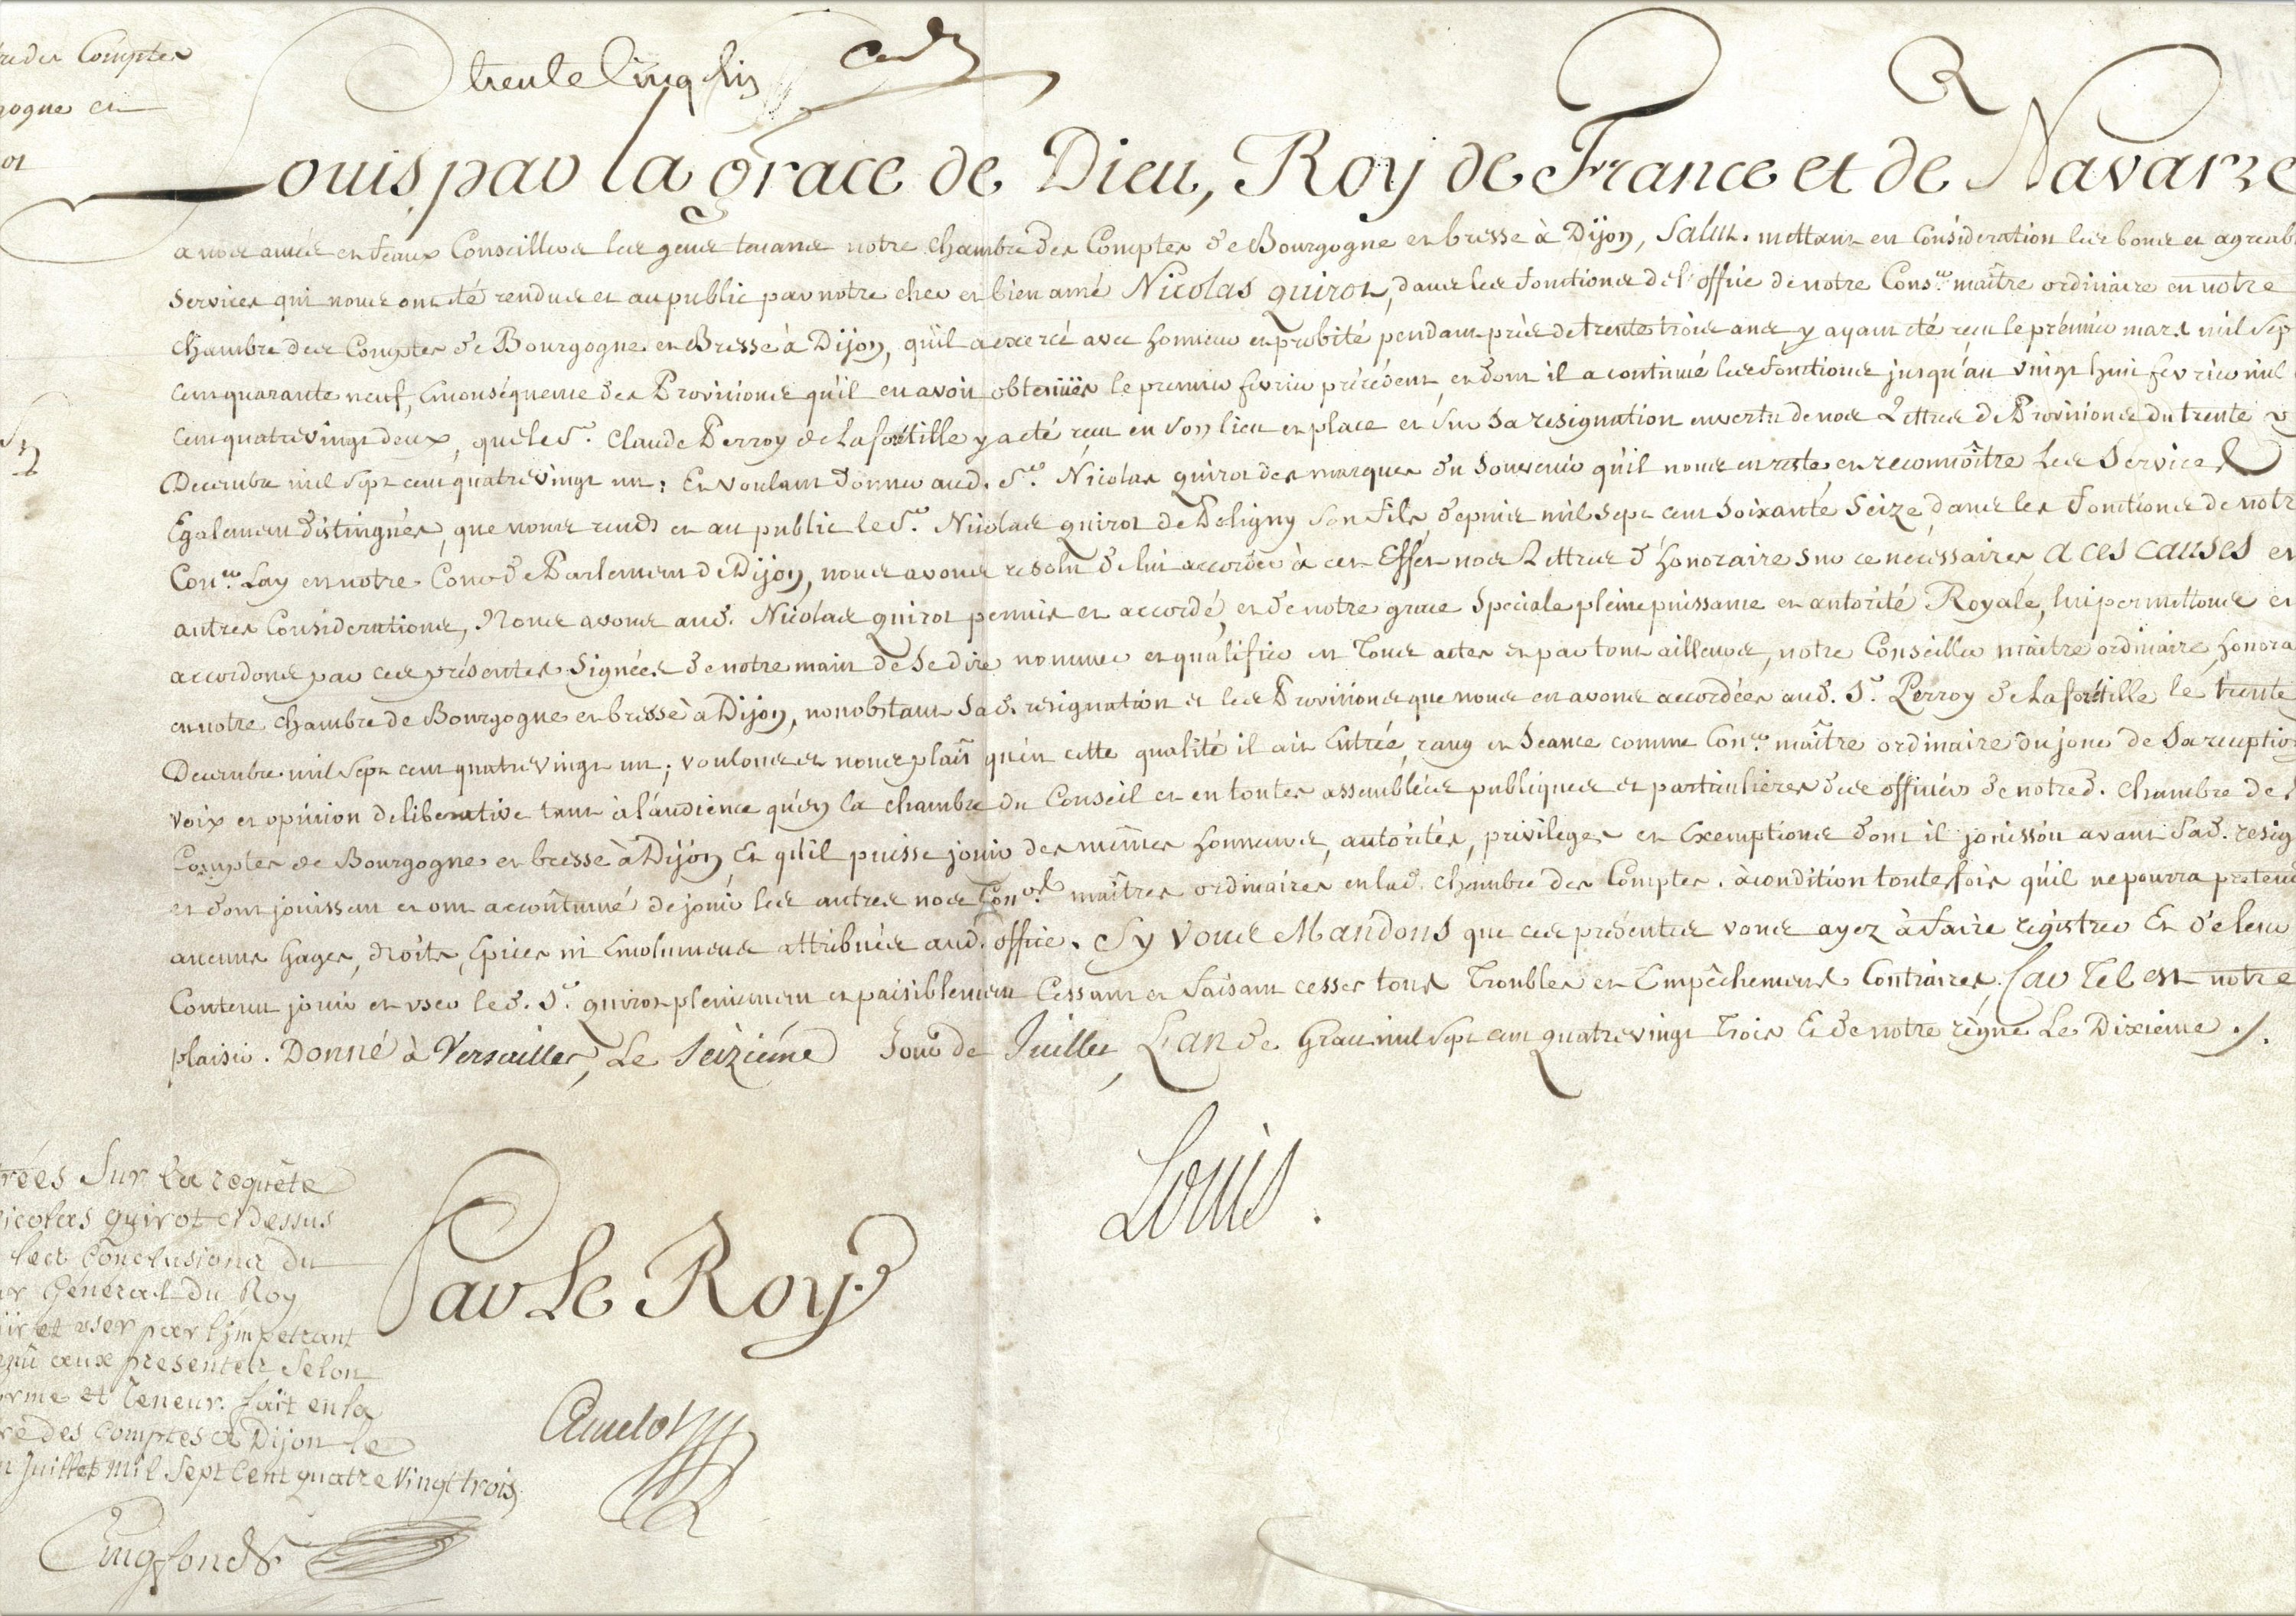 re des Comptes
gogne et
ot
trente cinq
Louis par la grace de Dieu, Roy de France et de Navarre
a nos amés et feaux Conseillers les gens tenans notre chambre des Comptes de Bourgogne et bresse à Dijon, Salut. mettant en Considération les bons et agreab
Services qui nous ont été rendus et au public par notre cher et bien amé Nicolas quirot, dans les fonctions de l'office de notre Cons.er maître ordinaire en notre
chambre des Comptes de Bourgogne et Bresse à Dijon, qu'il a exercé avec honneur et probité pendant près de trente trois ans, y ayant été reçu le premier mars mil sep
cent quarante neuf, en conséquence des Provisions qu'il en avoit obtenües le premier fevrier précédent, et dont il a continué les fonctions jusqu'au vingt huit fevrier mil
cent quatre vingt deux, que le S.r Claude Perroy de Laforétille y a été reçu en son lieu et place et sur sa resignation en vertu de nos Lettres de Provisions du trente
Decembre mil sept cent quatre vingt un; Et voulant donner aud. S.r Nicolas quirot des marques du souvenir qu'il nous en reste et reconnoître Les Services
Egalement distingués, que nous rend et au public le S.r Nicolas quirot de Poligny son fils depuis mil sept cent soixante Seize, dans les fonctions de notr
Con.er Lay en notre Cour de Parlement de Dijon, nous avons resolu de lui accorder à cet Effet nos Lettres d'honoraire sur ce nécessaires, a ces causes et
autres Considerations, Nous avons aud. Nicolas quirot permis et accordé, et de notre grace Speciale pleine puissance et autorité Royale, lui permettons et
accordons par ces présentes Signées de notre main de Se dire nommer et qualifier en Tous actes et par tout ailleurs, notre Conseiller maitre ordinaire honora
en notre chambre de Bourgogne et bresse à Dijon, nonobstant Sad. resignation et les Provisions que nous en avons accordées aud. S.r Perroy de Laforétille le trente
Decembre mil sept cent quatre vingt un; voulons et nous plaît qu'en cette qualité il ait Entrée, rang et Séance comme Con.er maître ordinaire du jour de Sa reception
voix et opinion deliberative tant à l'audience qu'en la chambre du Conseil et en toutes assemblées publiques et particulieres des officiers de notred. chambre des
Comptes de Bourgogne et bresse à Dijon, Et qu'il puisse jouir des mêmes honneurs, autorités, privileges et Exemptions dont il jouissoit avant Sad. resig
et dont jouissent et ont accoûtumé de jouir les autres nos Con.ers maîtres ordinaires en lad. chambre des Comptes. à condition toutes fois qu'il ne pourra pretend
aucuns gages, droits, épices ni Emolumens attribués aud. office. Sy Vous Mandons que ces présentes vous ayez à faire régistrer Et de leur
Contenu jouir et user led. S.r quirot pleinement et paisiblement Cessant et faisant cesser tous Troubles et Empêchemens Contraires. Car Tel est notre
plaisir. Donné à Versailles, Le Seizième Jour de Juillet L'an de Grace mil sept cent quatre vingt trois Et de notre règne Le Dixieme ./.
Louis.
Par Le Roy
Amelot
rées Sur la requête
icolas quirot cy dessus
les Conclusions du
ur Général du Roy
ir et user par l'impetrant
enû aux presentes Selon
orme et Teneur. fait en la
re des Comptes à Dijon le
n Juillet mil Sept Cent quatre Vingt trois.
Cinqfonds